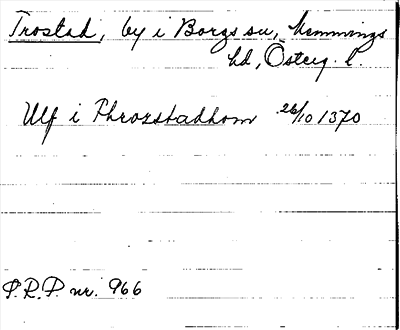 Trostad, by i Borgs sn, Memmings
hd, Österg. l.
Ulf i Throzstadhom 26/10 1370
S.R.P. nr. 966